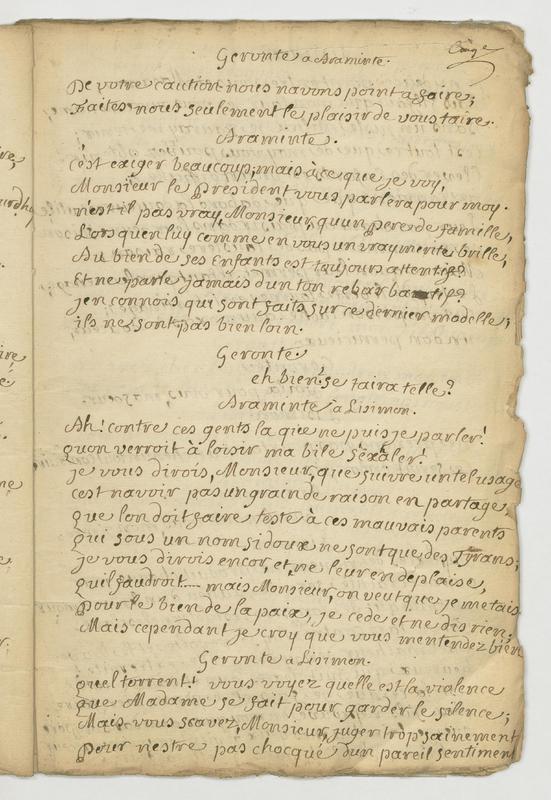 Geronte a Araminte.
De votre caution nous navons point a faire;
Faites nous seulement le plaisir de vous taire.
Araminte.
c'est exiger beaucoup, mais à ce que je voy,
Monsieur le president vous parlera pour moy.
n'est il pas vray, Monsieur, quun pere de famille,
Lors quen luy comme en vous un vray merite brille,
Au bien de ses Enfants est toujours attentif?
Et ne parle jamais dun ton rebarbatif?
jen connois qui sont faits sur ce dernier modelle;
ils ne sont pas bien loin.
Geronte.
eh bien! se taira telle?
Araminte a Lisimon.
Ah! contre ces gents la que ne puis je parler!
quon verroit à loisir ma bile s'exaler!
je vous dirois, Monsieur, que suivre un tel usage
cest navoir pas un grain de raison en partage,
que lon doit faire teste à ces mauvais parents
qui sous un nom si doux ne sont que des Tyrans;
je vous dirois encor, et, ne leur en deplaise,
quil faudroit.... mais Monsieur, on veut que je me tais
pour le bien de la paix, je cede et ne dis rien;
Mais cependant je croy que vous mentendez bien
Geronte a Lisimon.
quel torrent! vous voyez quelle est la violence
que Madame se fait pour garder le silence;
Mais vous scavez, Monsieur, juger trop sainement
pour nestre pas chocqué dun pareil sentiment